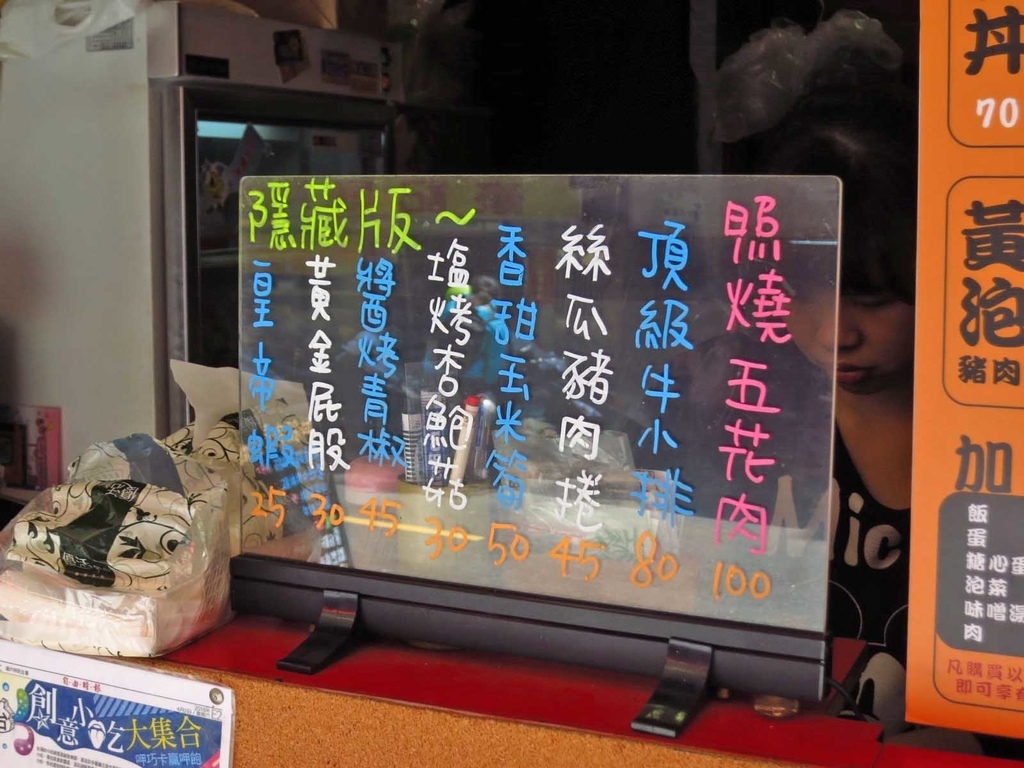 隱藏版～
照燒五花肉 100
頂級牛小排 80
絲瓜豬肉捲 45
香甜玉米筍 50
塩烤杏鮑菇 30
醬烤青椒 45
黃金屁股 30
皇帝蝦 25
丼
70
黃泡
豬肉
加
飯
蛋
糖心蛋
泡菜
味噌湯
肉
凡購買以
即可享
自由時報
創意小吃大集合
呷巧卡贏呷飽
Mic